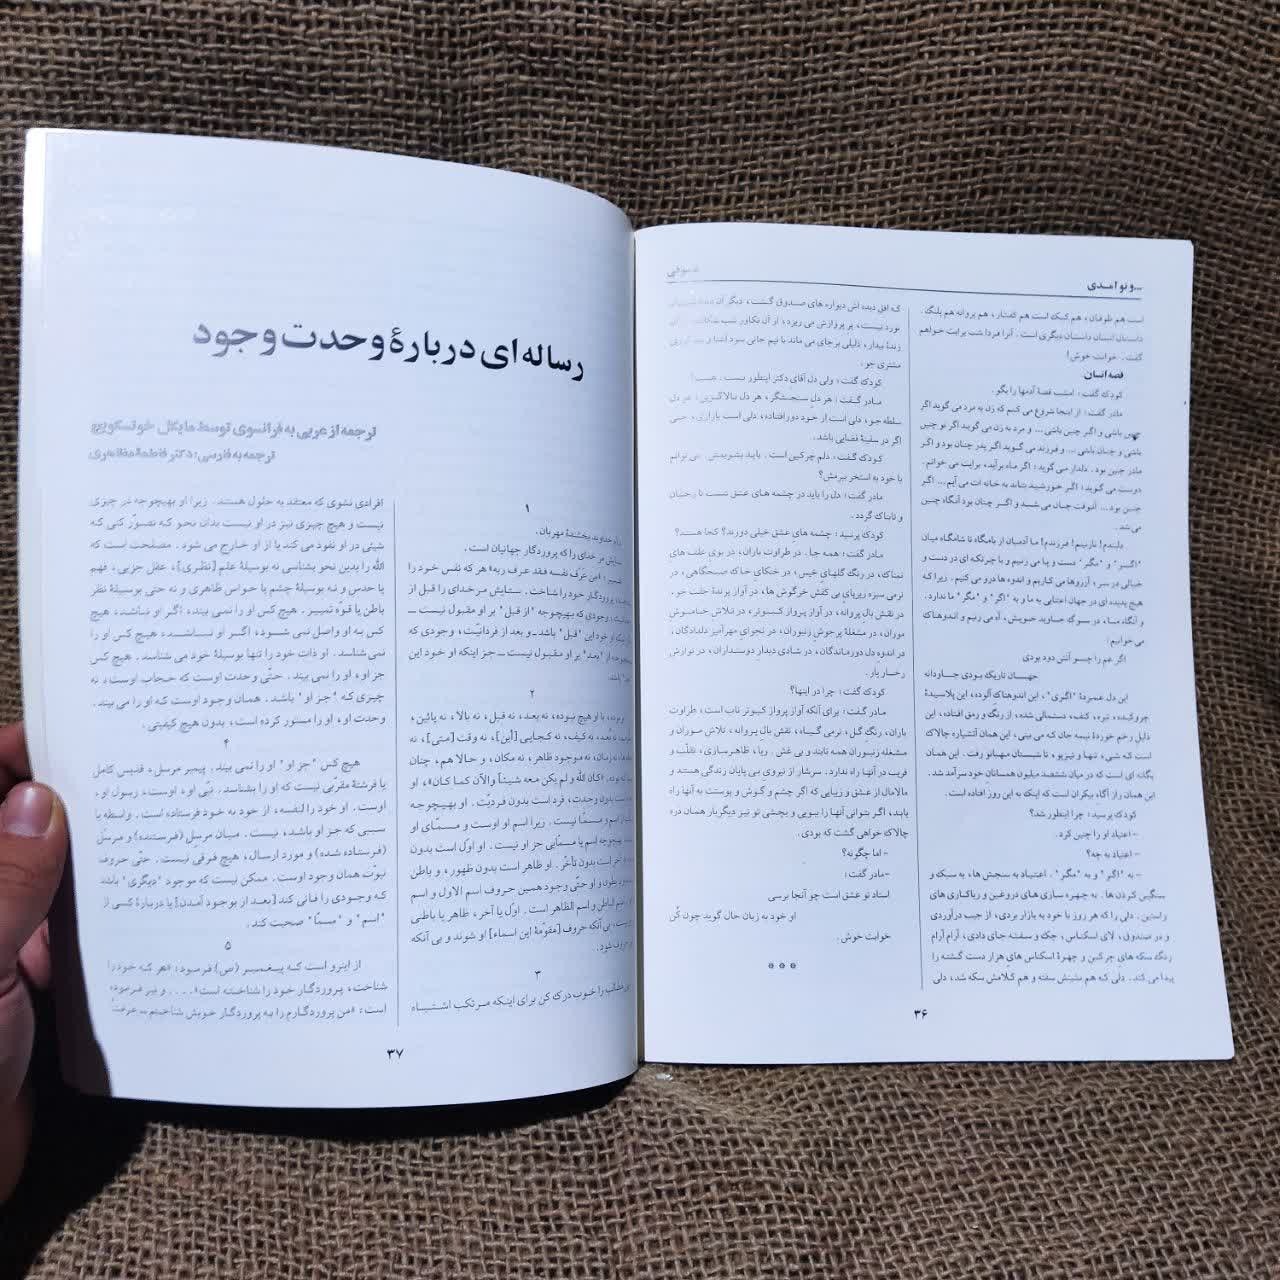 ...و تو آمدی
صوفی
است هم طوفان، هم کبک است هم کفتار، هم پروانه هم پلنگ.
داستان انسان داستان دیگری است. آنرا فردا شب برایت خواهم
گفت. خوابت خوش!
قصه انسان
کودک گفت: امشب قصهٔ آدمها را بگو.
مادر گفت: از اینجا شروع می کنم که زن به مرد می گوید اگر
چنین باشی و اگر چنین باشی ... و مرد به زن می گوید اگر تو چنین
باشی و چنان باشی ... و فرزند می گوید اگر پدر چنان بود و اگر
مادر چنین بود. دلدار می گوید: اگر ماه برآید، برایت می خوانم.
دوست می گوید: اگر خورشید بتابد به خانه ات می آیم... اگر
چنین بود... آنوقت چنان می شد و اگر چنان بود آنگاه چنین
می شد.
دلبندم! نازنینم! فرزندم! ما آدمیان از بامگاه تا شامگاه میان
"اگر" و "مگر" دست و پا می زنیم و با چرتکه ای در دست و
خیالی در سر، آرزوها می کاریم و اندوه‌ها درو می کنیم. زیرا که
هیچ پدیده ای در جهان اعتنایی به ما و به "اگر" و "مگر" ما ندارد.
و آنگاه ما، در سوگ جاوید خویش، آه می زنیم و اندوهناک
می خوانیم:
اگر غم را چو آتش دود بودی
جهان تاریک بودی جاودانه
این دل غمزدهٔ "اگری"، این اندوهناک آلوده، این پلاسیدهٔ
چروکیده، تیره، کثیف، دستمالی شده، از رنگ و رمق افتاده، این
ذلیل زخم خوردهٔ نیمه جان که می بینی، این همان آتشپاره چالاک
است که شبی، تنها و تیزپو، تا شبستان مهبانو رفت. این همان
یگانه ای است که در میان ششصد میلیون همسانان خود سرآمد شد.
این همان راز آگاه بیکران است که اینک به این روز افتاده است.
کودک پرسید: چرا اینطور شد؟
- اعتیاد او را چنین کرد.
- اعتیاد به چه؟
- به "اگر" و به "مگر". اعتیاد به سنجش ها، به سبک و
سنگین کردن ها. به چهره سازی های دروغین و ریاکاری های
راستین. دلی را که هر روز با خود به بازار بردی، از جیب درآوردی
و در صندوق، لای اسکناس، چک و سفته جای دادی، آرام آرام
رنگ سکه های چرکین و چهرهٔ اسکناس های هزار دست گشته را
پیدا می کند. دلی که هم نشینش سفته و هم کلامش سکه شد، دلی
که افق دیده اش دیواره های صندوق گشت، دیگر آن
نورد نیست، پر پروازش می ریزد، از آن تکاور شب
زندهٔ بیدار، ذلیلی برجای می ماند با نیم جانی سود آشنا و
مشتری جو.
کودک گفت: ولی دل آقای دکتر اینطور نیست.
مادر گفت: هر دل سنجشگر، هر دل بالاگزین، هر دل
سلطه جو، دلی است از خود دورافتاده، دلی است بازاری، حتی
اگر در سفینهٔ فضایی باشد.
کودک گفت: دلم چرکین است. باید بشویمش. می توانم
با خود به استخر ببرمش؟
مادر گفت: دل را باید در چشمه های عشق شست تا رخشان
و تابناک گردد.
کودک پرسید: چشمه های عشق خیلی دورند؟ کجا هستند؟
مادر گفت: همه جا. در طراوت باران، در بوی علف های
نمناک، در رنگ گلهای خیس، در خنکای خاک صبحگاهی، در
نرمی سبزه زیرپای بی کفش خرگوش ها، در آواز پرندهٔ جفت جو.
در نقش بال پروانه، در آواز پرواز کبوتر، در تلاش خاموش
موران، در مشغلهٔ پرجوش زنبوران، در نجوای مهرآمیز دلدادگان،
در اندوه دل دورماندگان، در شادی دیدار دوستداران، در نوازش
رخسار یار.
کودک گفت: چرا در اینها؟
مادر گفت: برای آنکه آواز پرواز کبوتر ناب است، طراوت
باران، رنگ گل، نرمی گیاه، نقش بال پروانه، تلاش موران و
مشغله زنبوران همه نابند و بی غش. ریا، ظاهرسازی، تقلب و
فریب در آنها راه ندارد. سرشار از نیروی بی پایان زندگی هستند و
مالامال از عشق و زیبایی که اگر چشم و گوش و پوست به آنها راه
یابد، اگر بتوانی آنها را ببویی و بچشی تو نیز دیگربار همان دره
چالاک خواهی گشت که بودی.
- اما چگونه؟
- مادر گفت:
استاد تو عشق است چو آنجا برسی
او خود به زبان حال گوید چون کُن
خوابت خوش.
***
۳۶
رساله ای دربارهٔ وحدت وجود
ترجمه از عربی به فرانسوی توسط مایکل خوتسکویچ
ترجمه به فارسی: دکتر فاطمه مظاهری
۱
خداوند بخشندهٔ مهربان.
ستایش مر خدای را که پروردگار جهانیان است.
«من عرف نفسه فقد عرف ربه» هر که نفس خود را
پروردگار خود را شناخت. ستایش مر خدای را قبل از
وجودی که بهیچوجه "از قبل" بر او مقبول نیست ــ
اینکه او خود این "قبل" باشد ــ و بعد از فردانیّت، وجودی که
بهیچوجه از "بعد" بر او مقبول نیست ــ جز اینکه او خود این
باشد.
۲
او بوده، با او هیچ بوده، نه بعد، نه قبل، نه بالا، نه پائین،
نه بُعد، نه کیف، نه کجایی [أین]، نه وقت [متی]، نه
نه زمان، نه موجود ظاهر، نه مکان، و حالا هم، چنان
بوده. «کان الله ولم یکن معه شیئاً والآن کما کان»، او
بدون وحدت، فرد است بدون فردیّت. او بهیچوجه
از اسم و مسمّا نیست. زیرا اسم او اوست و مسمّای او
بهیچوجه اسم یا مسمّایی جز او نیست. او اوّل است بدون
آخر است بدون تأخّر. او ظاهر است بدون ظهور، و باطن
بدون بطون و او حتّی وجود همین حروف اسم الاول و اسم
اسم الباطن و اسم الظاهر است. اوّل یا آخر، ظاهر یا باطنی
نیست، بی آنکه حروف [مقوّمهٔ این اسماء] او شوند و بی آنکه
حروف شود.
۳
این مطالب را خوب درک کن برای اینکه مرتکب اشتباه
افرادی نشوی که معتقد به حلول هستند. زیرا او بهیچوجه در چیزی
نیست و هیچ چیزی نیز در او نیست بدان نحو که تصوّر کنی که
شیئی در او نفوذ می کند یا از او خارج می شود. مصلحت است که
الله را بدین نحو بشناسی نه بوسیلهٔ علم [نظری]، عقل جزیی، فهم
یا حدس و نه بوسیلهٔ چشم یا حواس ظاهری و نه حتی بوسیلهٔ نظر
باطن یا قوّه تمییز. هیچ کس او را نمی بیند، اگر او نباشد، هیچ
کس به او واصل نمی شود، اگر او نباشد، هیچ کس او را
نمی شناسد. او ذات خود را تنها بوسیلهٔ خود می شناسد. هیچ کس
جز او، او را نمی بیند. حتّی وحدت اوست که حجاب اوست نه
چیزی که "جز او" باشد. همان وجود اوست که او را می بیند.
وحدت او، او را مستور کرده است، بدون هیچ کیفیتی.
۴
هیچ کس "جز او" او را نمی بیند. پیمبر مرسل، قدیس کامل
یا فرشتهٔ مقرّبی نیست که او را بشناسد. نبّی او، اوست، رسول او،
اوست. او خود را لنفسه، از خود به خود فرستاده است. واسطه یا
سببی که جز او باشد، نیست. میان مرسل (فرستنده) و مرسَل
(فرستاده شده) و مورد ارسال، هیچ فرقی نیست. حتّی حروف
نبوّت همان وجود اوست. ممکن نیست که موجود "دیگری" باشد
که وجودی را فانی کند [بعد از بوجود آمدن] یا دربارهٔ کسی از
"اسم" و "مسمّا" صحبت کند.
۵
از اینرو است که پیغمبر (ص) فرمود: «هر که خود را
شناخت، پروردگار خود را شناخته است». ... و نیز فرمود:
است: «من پروردگارم را به پروردگار خویش شناختم ــ عرفتُ
۳۷